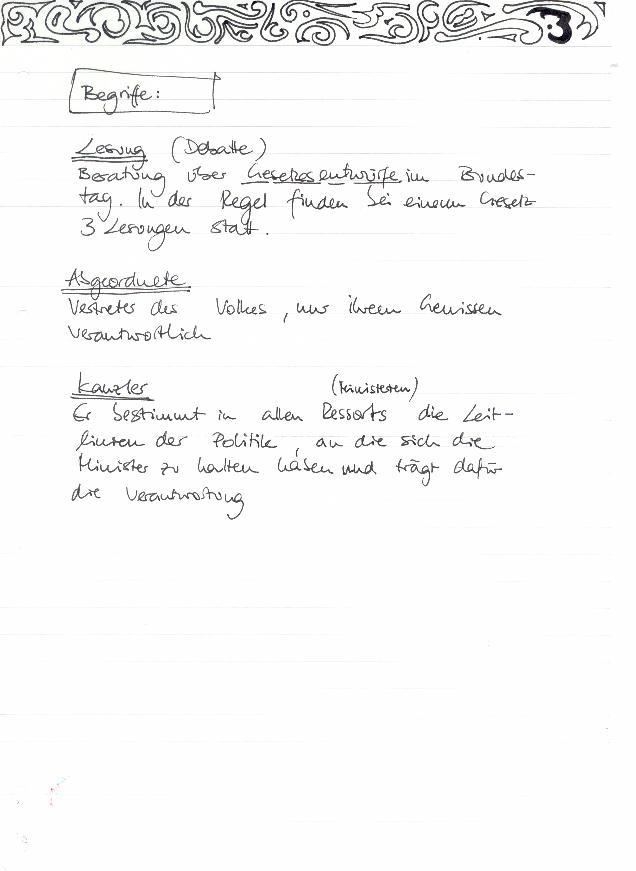 3
Begriffe:
Lesung (Debatte)
Beratung über Gesetzesentwürfe im Bundes-
tag. In der Regel finden bei einem Gesetz
3 Lesungen statt.
Abgeordnete
Vertreter des Volkes, nur ihrem Gewissen
verantwortlich
Kanzler (Ministerien)
Er bestimmt in allen Ressorts die Leit-
linien der Politik, an die sich die
Minister zu halten haben und trägt dafür
die Verantwortung